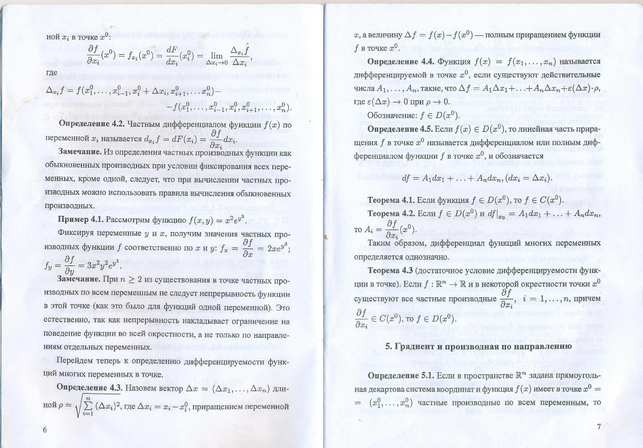 ной xᵢ в точке x⁰:
∂f/∂xᵢ (x⁰) = f_{xᵢ}(x⁰) = dF/dxᵢ (xᵢ⁰) = lim_{Δxᵢ→0} Δ_{xᵢ}f/Δxᵢ,
где
Δ_{xᵢ}f = f(x₁⁰, …, x⁰ᵢ₋₁, xᵢ⁰ + Δxᵢ, x⁰ᵢ₊₁, …, xₙ⁰)−
−f(x₁⁰, …, x⁰ᵢ₋₁, xᵢ⁰, x⁰ᵢ₊₁, …, xₙ⁰).
Определение 4.2. Частным дифференциалом функции f(x) по
переменной xᵢ называется d_{xᵢ}f = dF(xᵢ) = ∂f/∂xᵢ dxᵢ.
Замечание. Из определения частных производных функции как
обыкновенных производных при условии фиксирования всех пере-
менных, кроме одной, следует, что при вычислении частных про-
изводных можно использовать правила вычисления обыкновенных
производных.
Пример 4.1. Рассмотрим функцию f(x, y) = x²e^{y³}.
Фиксируя переменные y и x, получим значения частных про-
изводных функции f соответственно по x и y: fₓ = ∂f/∂x = 2xe^{y³};
f_y = ∂f/∂y = 3x²y²e^{y³}.
Замечание. При n ≥ 2 из существования в точке частных про-
изводных по всем переменным не следует непрерывность функции
в этой точке (как это было для функций одной переменной). Это
естественно, так как непрерывность накладывает ограничение на
поведение функции во всей окрестности, а не только по направле-
ниям отдельных переменных.
Перейдем теперь к определению дифференцируемости функ-
ций многих переменных в точке.
Определение 4.3. Назовем вектор Δx = (Δx₁, …, Δxₙ) дли-
ной ρ = √(∑_{i=1}^{n} (Δxᵢ)²), где Δxᵢ = xᵢ − xᵢ⁰, приращением переменной
6
x, а величину Δf = f(x) − f(x⁰) — полным приращением функции
f в точке x⁰.
Определение 4.4. Функция f(x) = f(x₁, …, xₙ) называется
дифференцируемой в точке x⁰, если существуют действительные
числа A₁, …, Aₙ, такие, что Δf = A₁Δx₁+…+AₙΔxₙ+ε(Δx)·ρ,
где ε(Δx) → 0 при ρ → 0.
Обозначение: f ∈ D(x⁰).
Определение 4.5. Если f(x) ∈ D(x⁰), то линейная часть прира-
щения f в точке x⁰ называется дифференциалом или полным диф-
ференциалом функции f в точке x⁰, и обозначается
df = A₁dx₁ + … + Aₙdxₙ, (dxᵢ = Δxᵢ).
Теорема 4.1. Если функция f ∈ D(x⁰), то f ∈ C(x⁰).
Теорема 4.2. Если f ∈ D(x⁰) и df|ₓ₀ = A₁dx₁ + … + Aₙdxₙ,
то Aᵢ = ∂f/∂xᵢ (x⁰).
Таким образом, дифференциал функций многих переменных
определяется однозначно.
Теорема 4.3 (достаточное условие дифференцируемости функ-
ции в точке). Если f : ℝⁿ → ℝ и в некоторой окрестности точки x⁰
существуют все частные производные ∂f/∂xᵢ, i = 1, …, n, причем
∂f/∂xᵢ ∈ C(x⁰), то f ∈ D(x⁰).
5. Градиент и производная по направлению
Определение 5.1. Если в пространстве ℝⁿ задана прямоуголь-
ная декартова система координат и функция f(x) имеет в точке x⁰ =
= (x₁⁰, …, xₙ⁰) частные производные по всем переменным, то
7